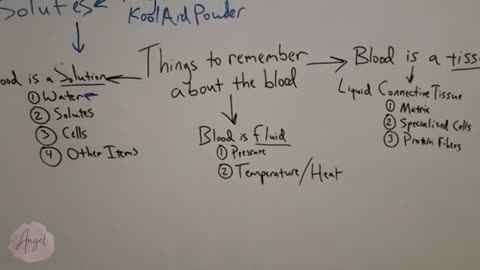 Solutes
KoolAid Powder
Things to remember
about the blood
ood is a Solution
① Water
② Solutes
③ Cells
④ Other Items
Blood is fluid
① Pressure
② Temperature/Heat
Blood is a tiss
Liquid Connective Tissue
① Matrix
② Specialized Cells
③ Protein Fibers
Angel